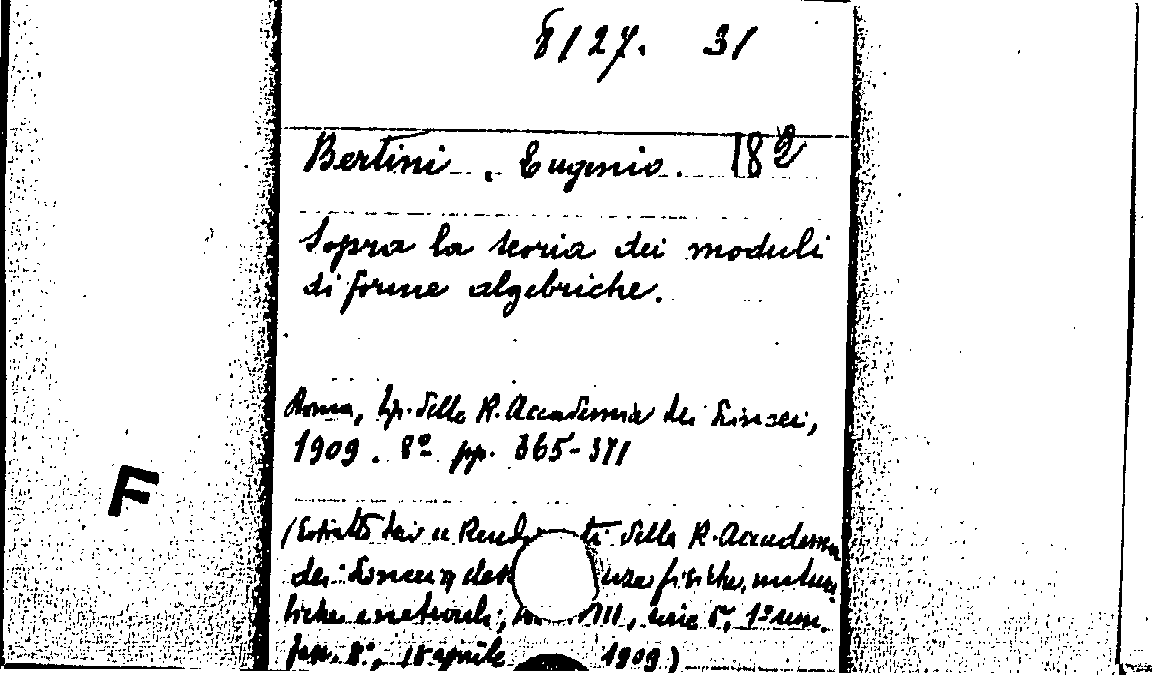 8/27. 31
Bertini, Eugenio. 182
Sopra la teoria dei moduli
di forme algebriche.
Roma, tip. della R. Accademia dei Lincei,
1909. 8º pp. 365-371
F
(Estratto dai « Rend ti della R. Accademia
dei Lincei, fisiche, matema
tiche e naturali; XVIII, serie 5ª, 1º sem.
fasc. 8º, 18 aprile 1909)